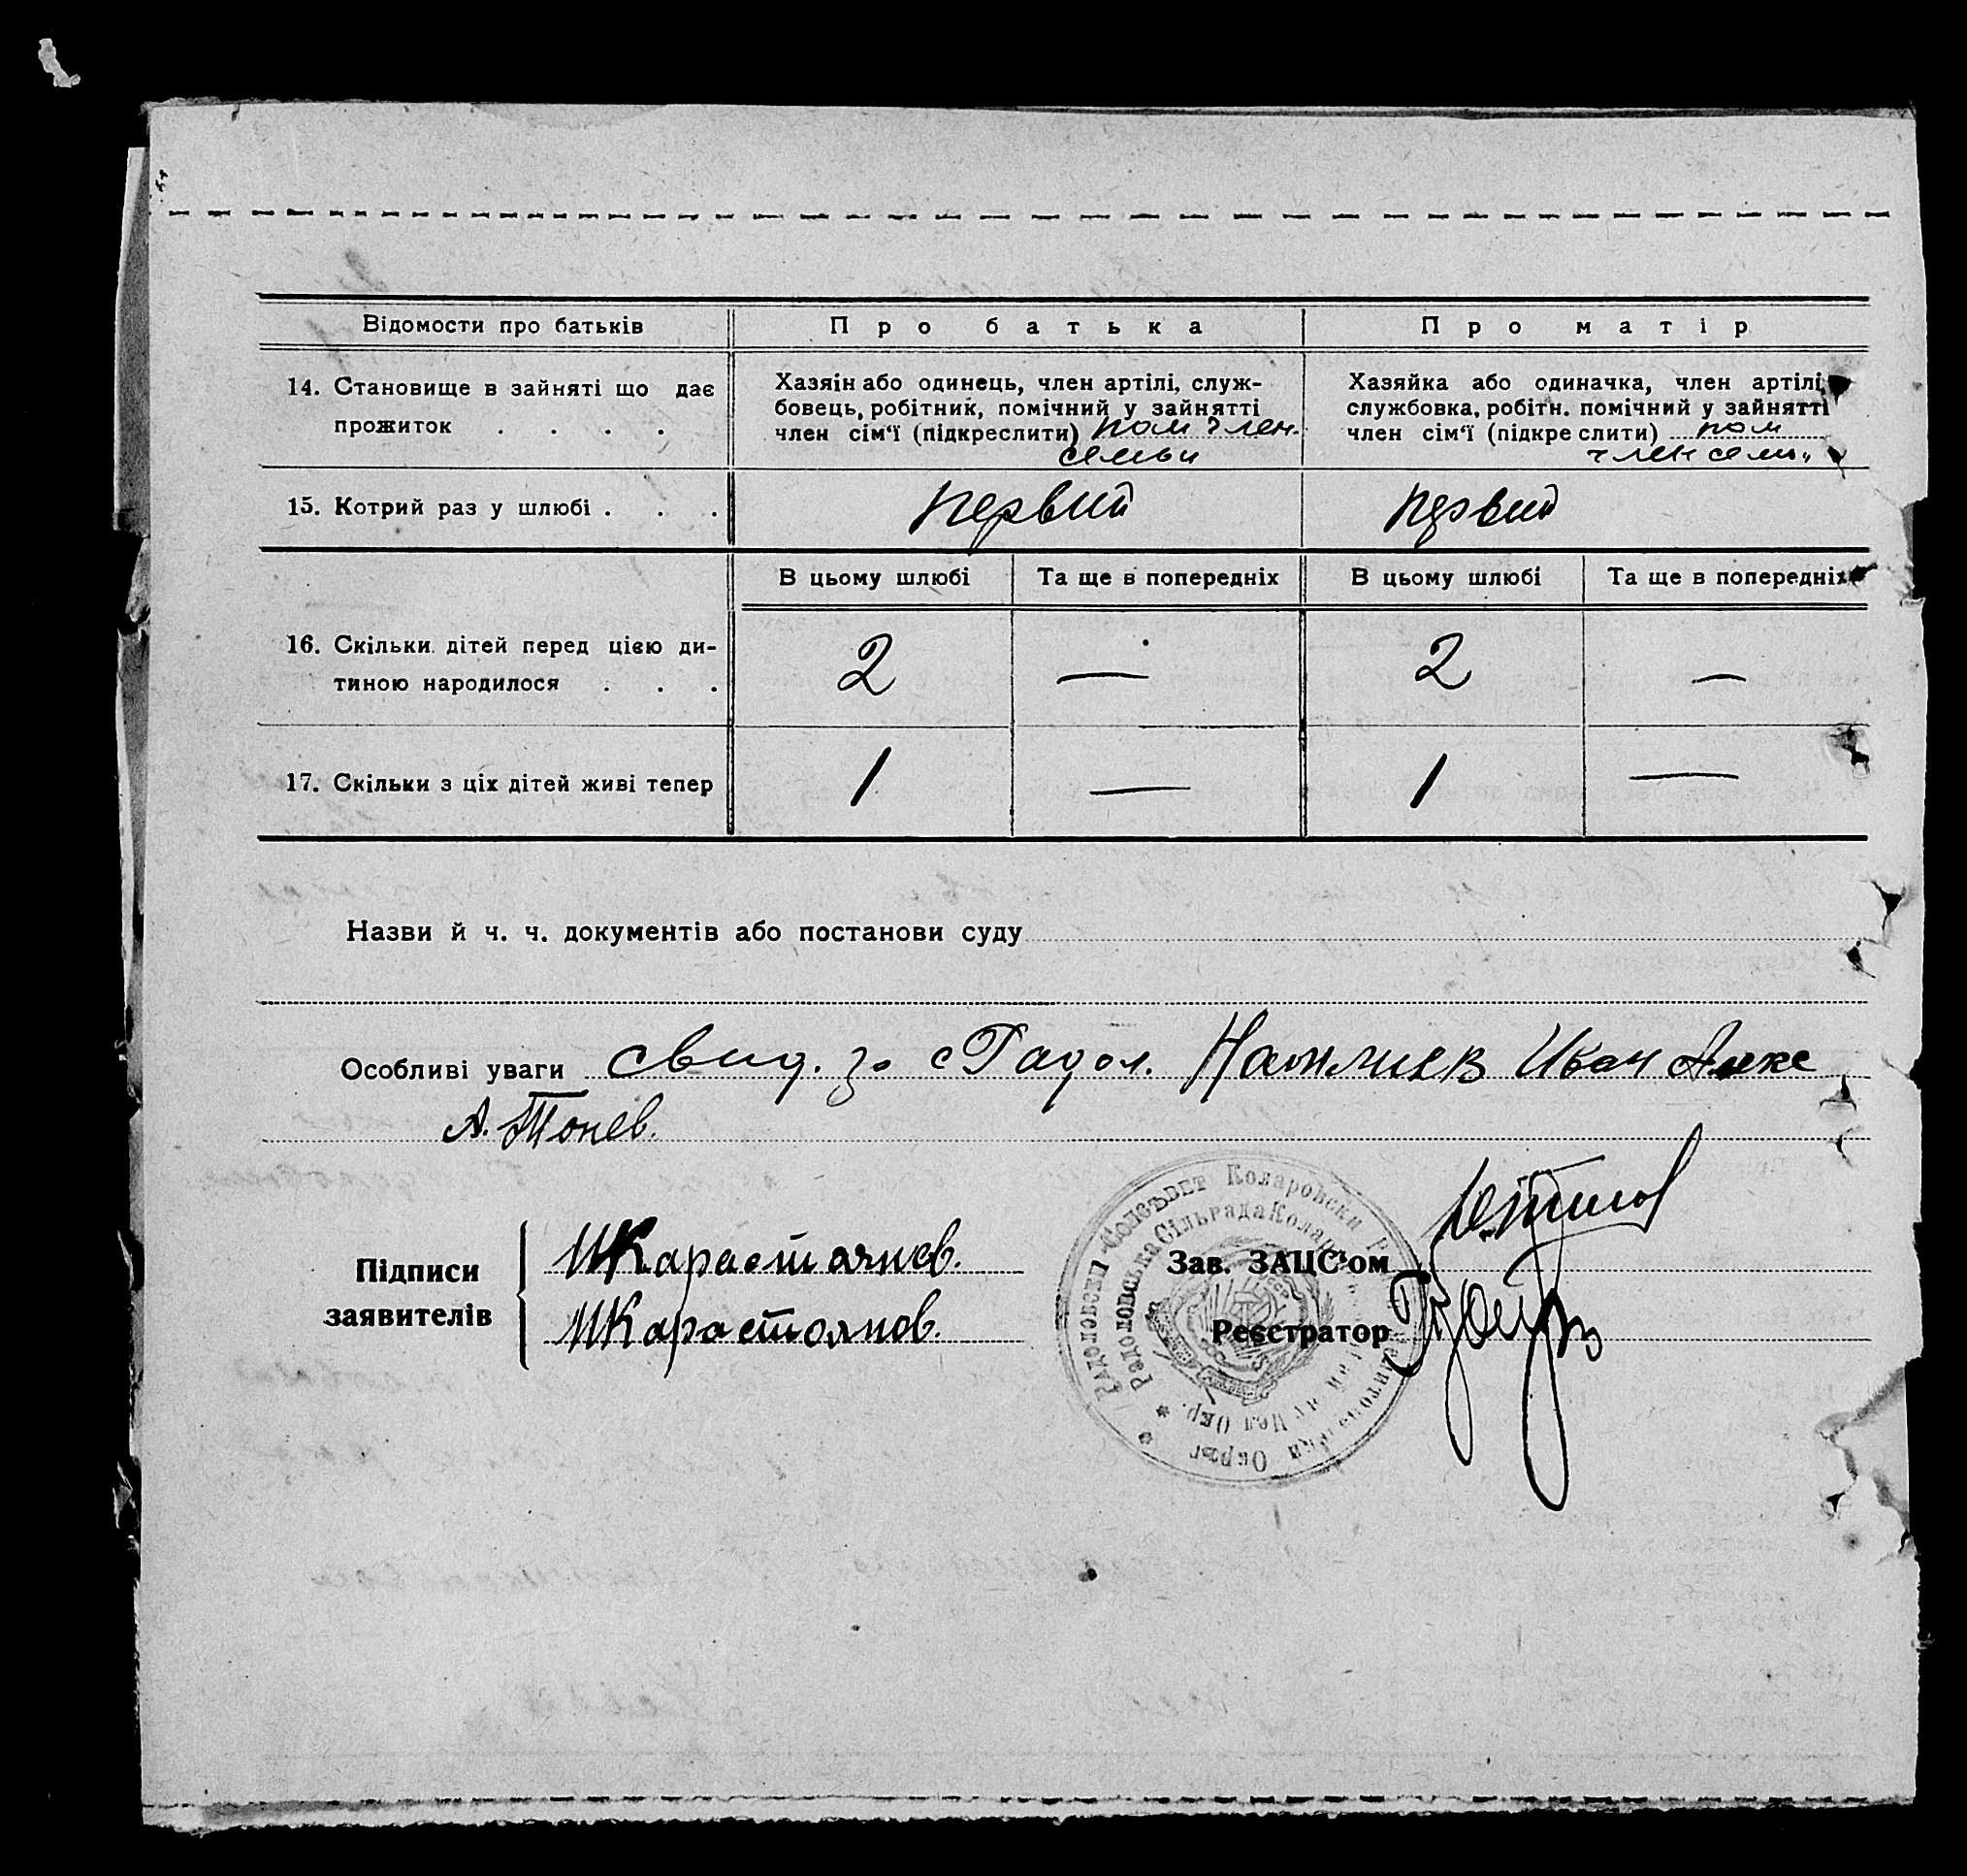 Відомости про батьків
Про батька
Про матір
14. Становище в зайняті що дає
прожиток . . . .
Хазяін або одинець, член артілі, служ-
бовець, робітник, помічний у зайнятті
член сім‘ї (підкреслити) пом член.
семьи
Хазяйка або одиначка, член артілі,
службовка, робітн. помічний у зайнятті
член сім‘ї (підкреслити) пом
член семьи
15. Котрий раз у шлюбі . . .
первий
первий
В цьому шлюбі
Та ще в попередніх
В цьому шлюбі
Та ще в попередніх
16. Скільки дітей перед цією ди-
тиною народилося . . .
2 — 2 —
17. Скільки з ціх дітей живі тепер
1 — 1 —
Назви й ч. ч. документів або постанови суду
Особливі уваги свид. зо с Радол. Иван
А. Тонев.
Підписи
заявителів
ИКарастоянов.
ИКарастоянов.
Зав. ЗАЦС‘ом
Реєстратор
Радоловски Солсъвет Коларовски Окръг
Радоловська Сільрада Мел Окр.